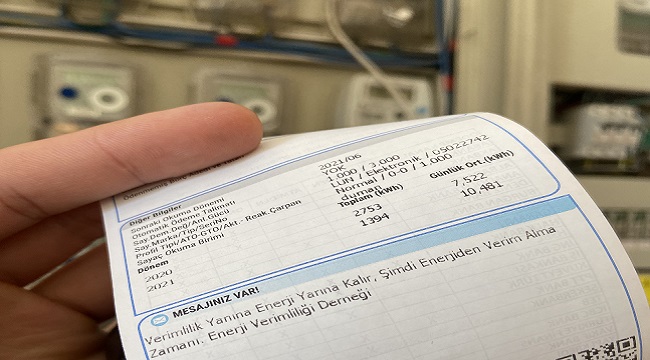 Diğer Bilgiler
Sonraki Okuma Dönemi 2021/06
Otomatik Ödeme Talimatı YOK
Say.Dem.Değ/Akt.Gücü 1.000 / 3.000
Say.Marka/Tip/SeriNo LUN / Elektronik / 05022742
Profil Tipi/ATO-GTO/Akt.- Reak.Çarpan Normal / 0-0 / 1.000
Sayaç Okuma Birimi duman
Dönem Toplam (kWh) Günlük Ort.(kWh)
2020 2753 7,522
2021 1394 10,481
MESAJINIZ VAR!
Verimlilik Yanına Enerji Yarına Kalır, Şimdi Enerjiden Verim Alma
Zamanı. Enerji Verimliliği Derneği